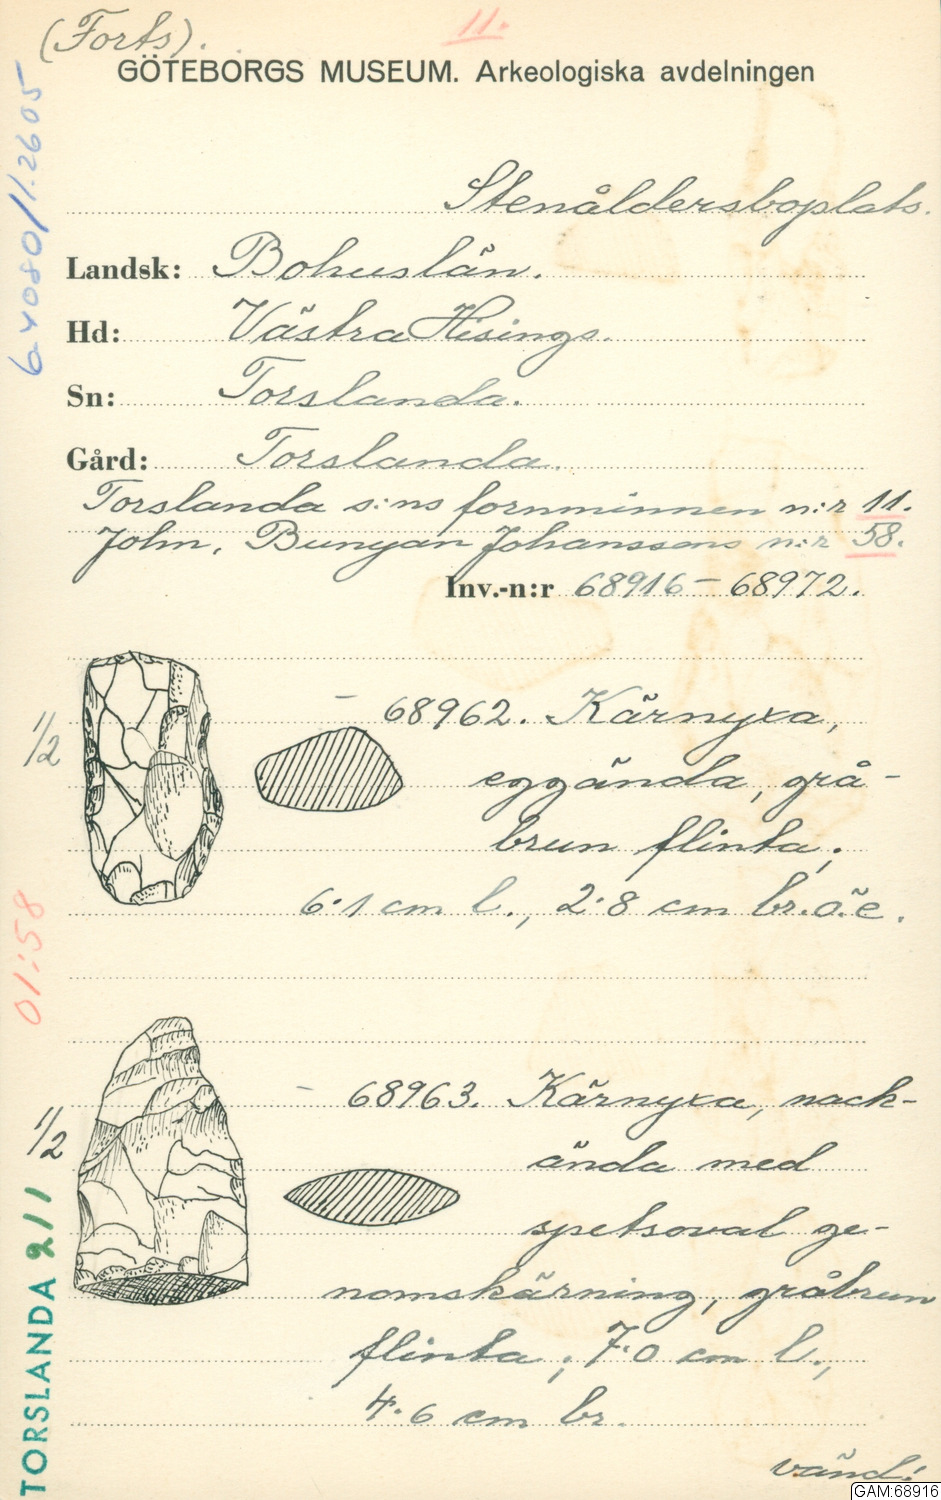 (Forts). 11.
GÖTEBORGS MUSEUM. Arkeologiska avdelningen
6-4080/1.2605
Stenåldersboplats.
Landsk: Bohuslän.
Hd: Västra Hisings.
Sn: Torslanda.
Gård: Torslanda.
Torslanda s:ns fornminnen n:r 11.
John. Bunyan Johanssons n:r 58.
Inv.-n:r 68916 – 68972.
1/2
– 68962. Kärnyxa,
eggända, grå-
brun flinta;
6·1 cm l., 2·8 cm br. ö. e.
01:58
1/2
– 68963. Kärnyxa, nack-
ända med
spetsoval ge-
nomskärning, gråbrun
flinta; 7·0 cm l.,
4·6 cm br.
TORSLANDA 211
vänd!
GAM:68916